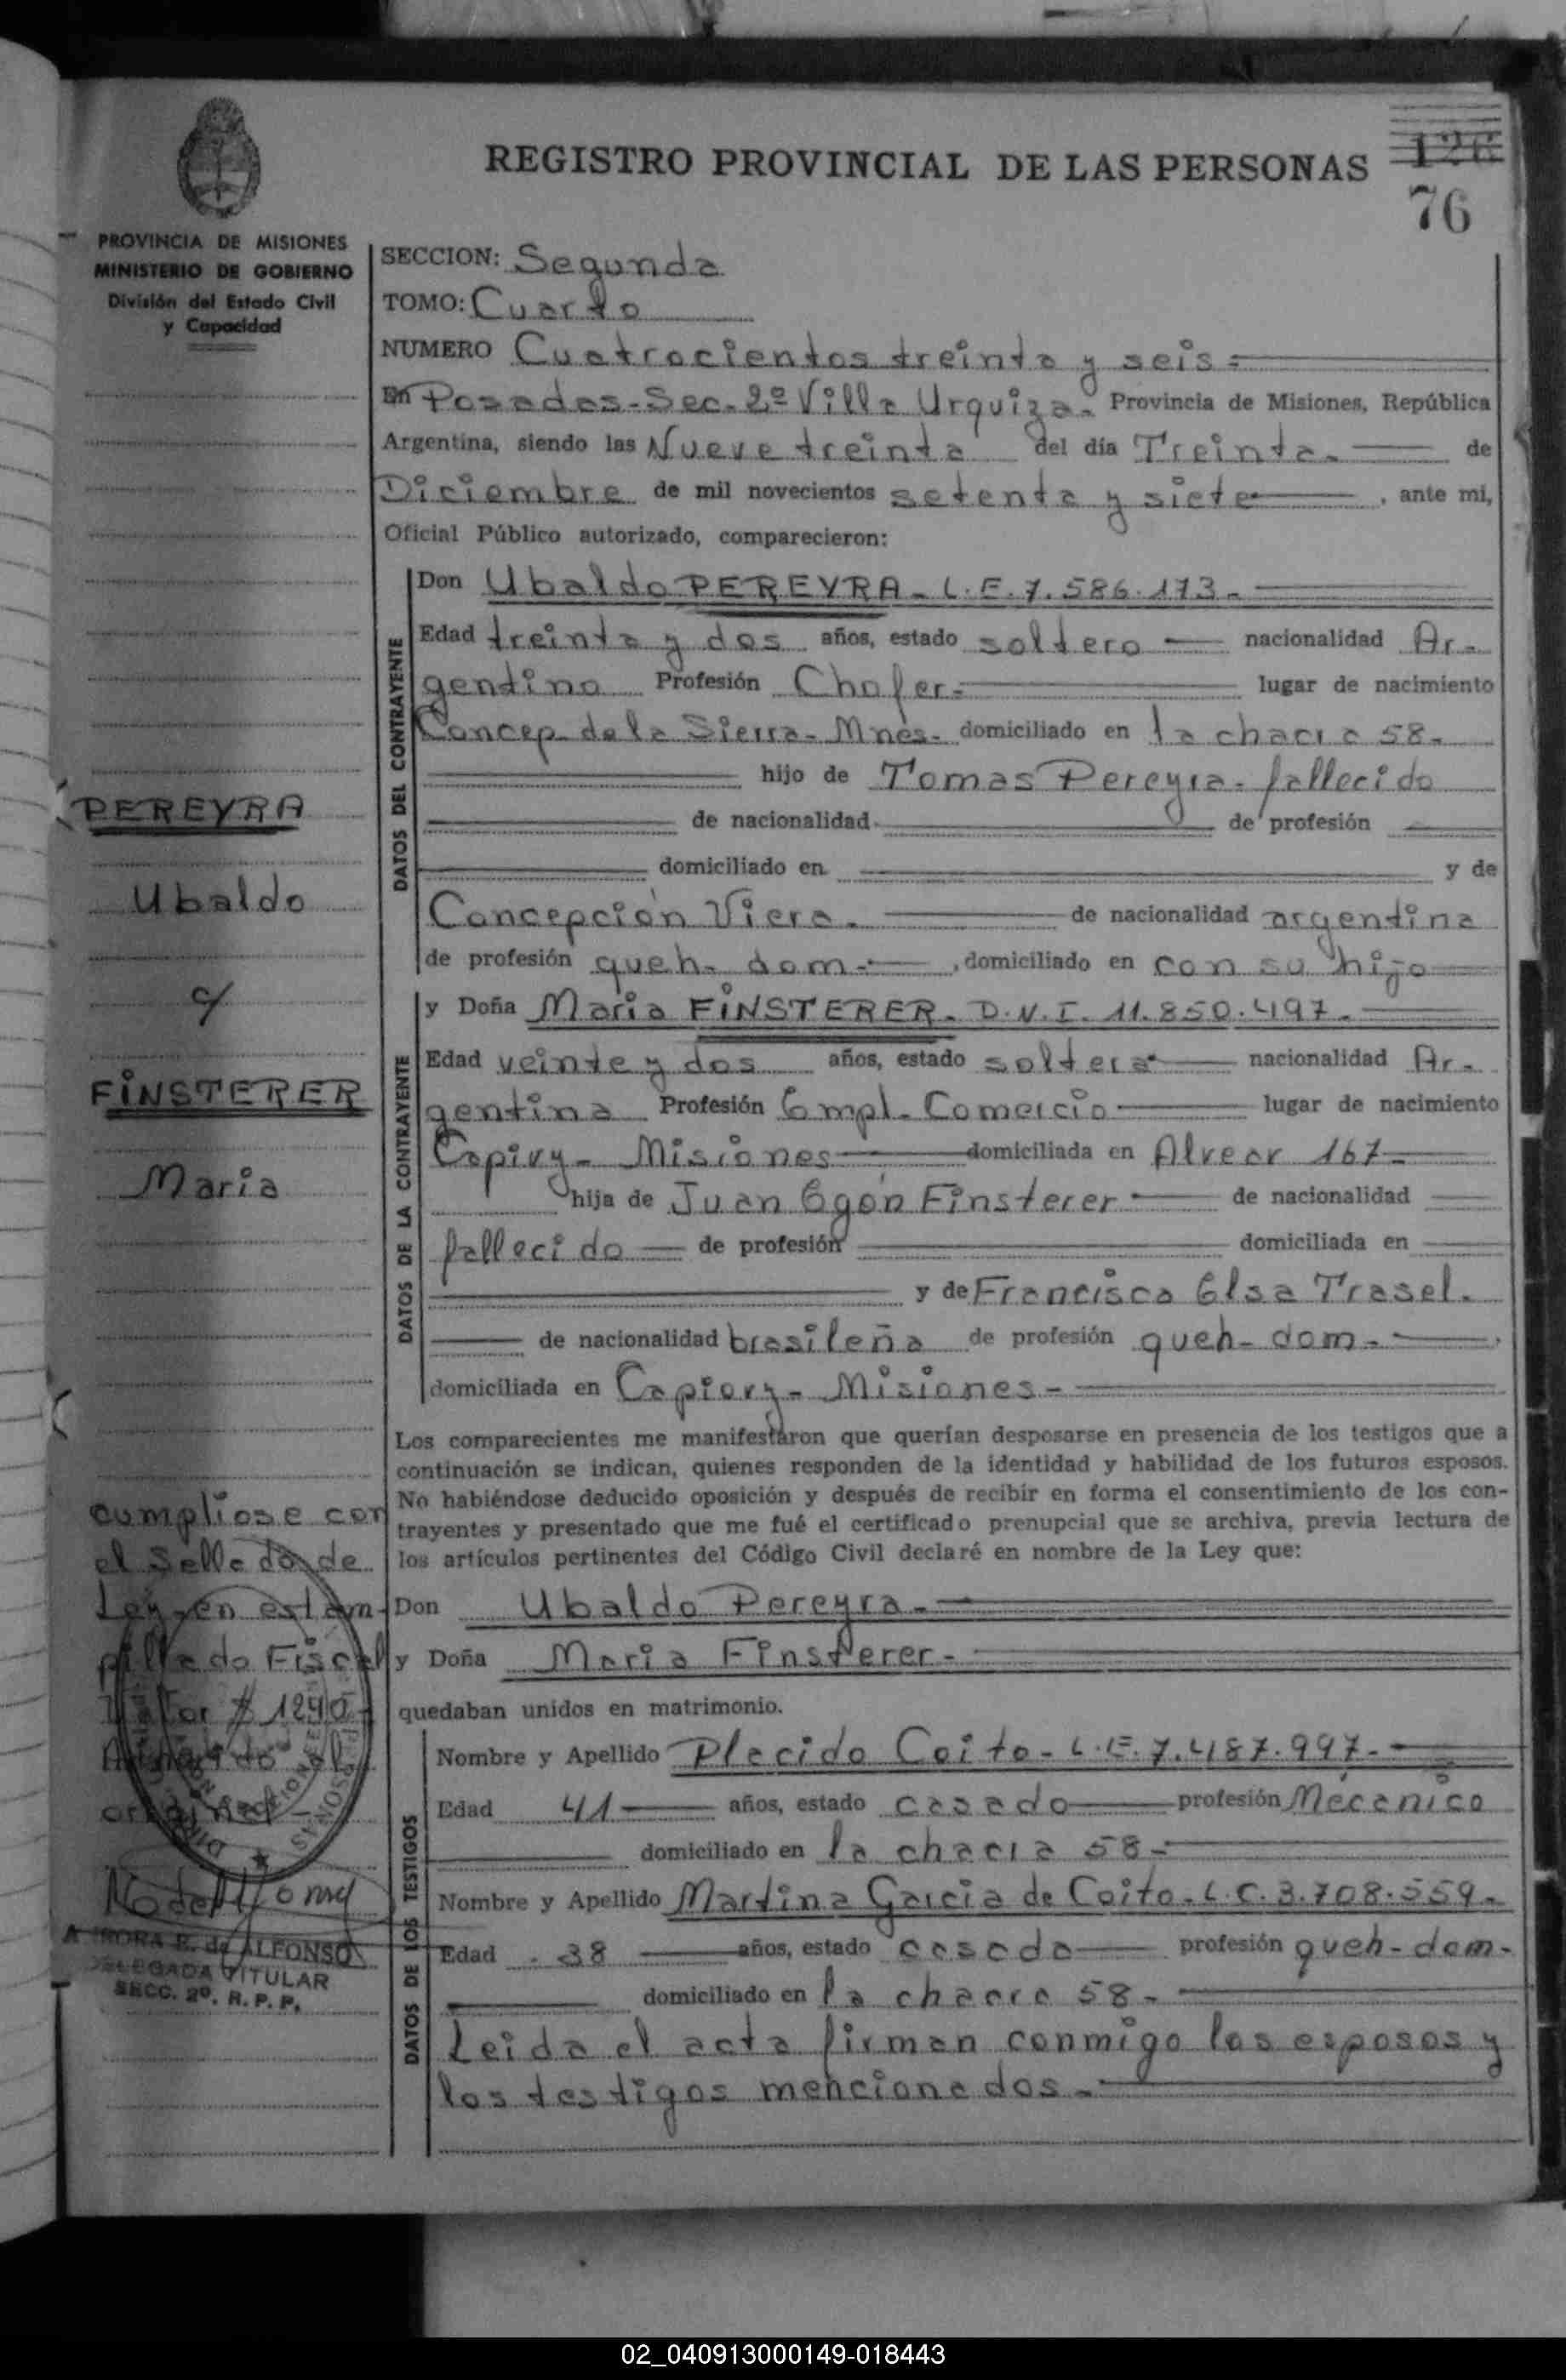 REGISTRO PROVINCIAL DE LAS PERSONAS
126
76
PROVINCIA DE MISIONES
MINISTERIO DE GOBIERNO
División del Estado Civil
y Capacidad
SECCION: Segunda
TOMO: Cuarto
NUMERO Cuatrocientos treinta y seis =
En Posadas-Sec-2º Villa Urquiza- Provincia de Misiones, República
Argentina, siendo las Nueve treinta del día Treinta- de
Diciembre de mil novecientos setenta y siete , ante mi,
Oficial Público autorizado, comparecieron:
DATOS DEL CONTRAYENTE
Don Ubaldo PEREYRA- L.E.7.586.173-
Edad treinta y dos años, estado soltero nacionalidad Ar-
gentino Profesión Chofer- lugar de nacimiento
Concep de la Sierra- Mnes- domiciliado en la chacra 58-
hijo de Tomas Pereyra- fallecido
de nacionalidad de profesión
domiciliado en y de
Concepción Viera- de nacionalidad argentina
de profesión queh- dom- , domiciliado en con su hijo
DATOS DE LA CONTRAYENTE
y Doña Maria FINSTERER- D.N.I. 11.850.497-
Edad veinte y dos años, estado soltera nacionalidad Ar-
gentina Profesión Empl- Comercio lugar de nacimiento
Capivy- Misiones domiciliada en Alvear 167-
hija de Juan Egón Finsterer de nacionalidad
fallecido de profesión domiciliada en
y de Francisca Elsa Trasel.
de nacionalidad brasileña de profesión queh- dom-
domiciliada en Capiovy- Misiones-
Los comparecientes me manifestaron que querían desposarse en presencia de los testigos que a
continuación se indican, quienes responden de la identidad y habilidad de los futuros esposos.
No habiéndose deducido oposición y después de recibir en forma el consentimiento de los con-
trayentes y presentado que me fué el certificado prenupcial que se archiva, previa lectura de
los artículos pertinentes del Código Civil declaré en nombre de la Ley que:
Don Ubaldo Pereyra-
y Doña Maria Finsterer-
quedaban unidos en matrimonio.
DATOS DE LOS TESTIGOS
Nombre y Apellido Placido Coito- L.E.7.487.997-
Edad 41 años, estado casado profesión Mecánico
domiciliado en la chacra 58-
Nombre y Apellido Martina Garcia de Coito- L.C.3.708.559-
Edad 38 años, estado casada profesión queh- dom-
domiciliado en la chacra 58-
Leida el acta firman conmigo los esposos y
los testigos mencionados-
PEREYRA
Ubaldo
c/
FINSTERER
Maria
cumpliose con
el Sellado de
Ley en estam-
pillado Fiscal
Valor $ 1240-
al
original
AURORA E. de ALFONSO
DELEGADA TITULAR
SECC. 2º. R. P. P.
02_040913000149-018443